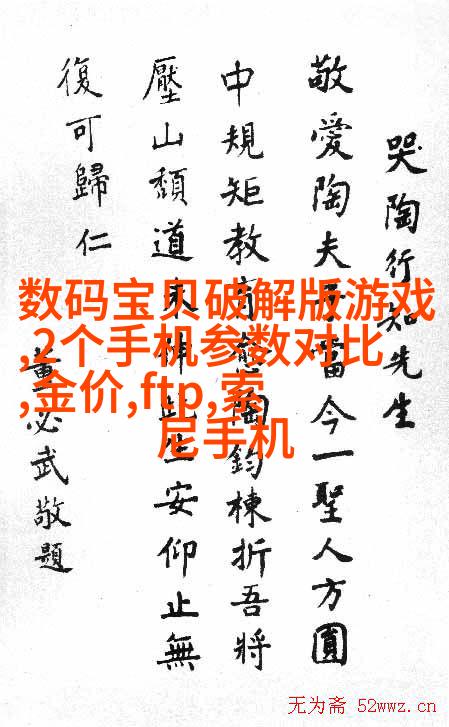 哭陶行知先生
敬愛陶夫子當今一聖人方圓
中規矩教育愈陶鈞棟折吾將
壓山頹道未伸此生安仰止無
復可歸仁
董必武敬題
数码宝贝破解版游戏
,2个手机参数对比
,金价,ftp,索
尼手机
无为斋 52wwz.cn